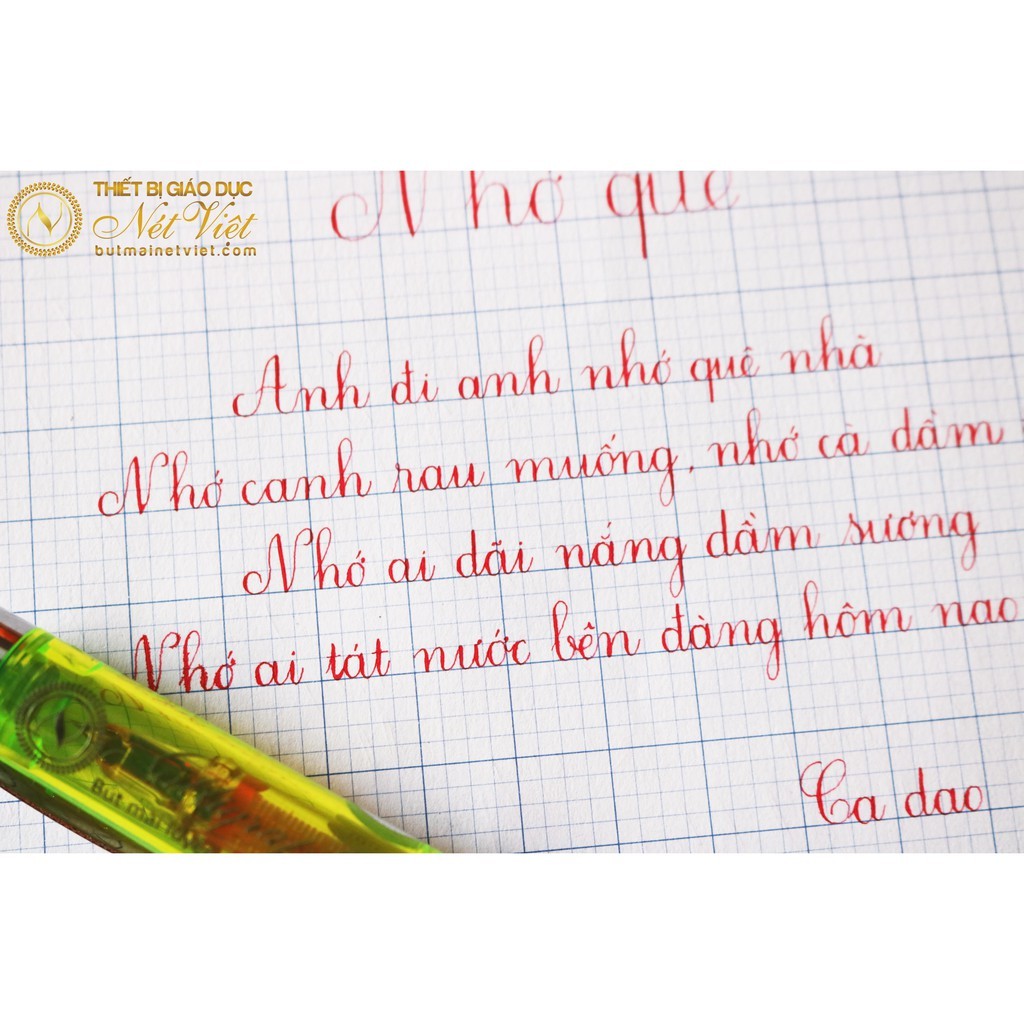 THIẾT BỊ GIÁO DỤC
Nét Việt
butmainetviet.com
Nhớ quê
Anh đi anh nhớ quê nhà
Nhớ canh rau muống, nhớ cà dầm
Nhớ ai dãi nắng dầm sương
Nhớ ai tát nước bên đàng hôm nao
Ca dao
Bút mài